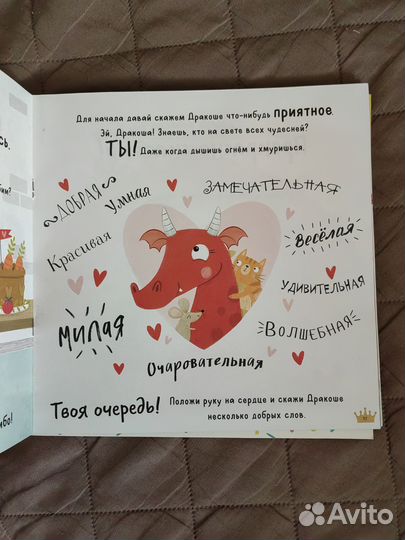 Для начала давай скажем Дракоше что-нибудь приятное.
Эй, Дракоша! Знаешь, кто на свете всех чудесней?
ТЫ! Даже когда дышишь огнём и хмуришься.
ДОБРАЯ
Умная
ЗАМЕЧАТЕЛЬНАЯ
Красивая
Весёлая
УДИВИТЕЛЬНАЯ
МИЛАЯ
ВОЛШЕБНАЯ
Очаровательная
Твоя очередь! Положи руку на сердце и скажи Дракоше
несколько добрых слов.
Avito